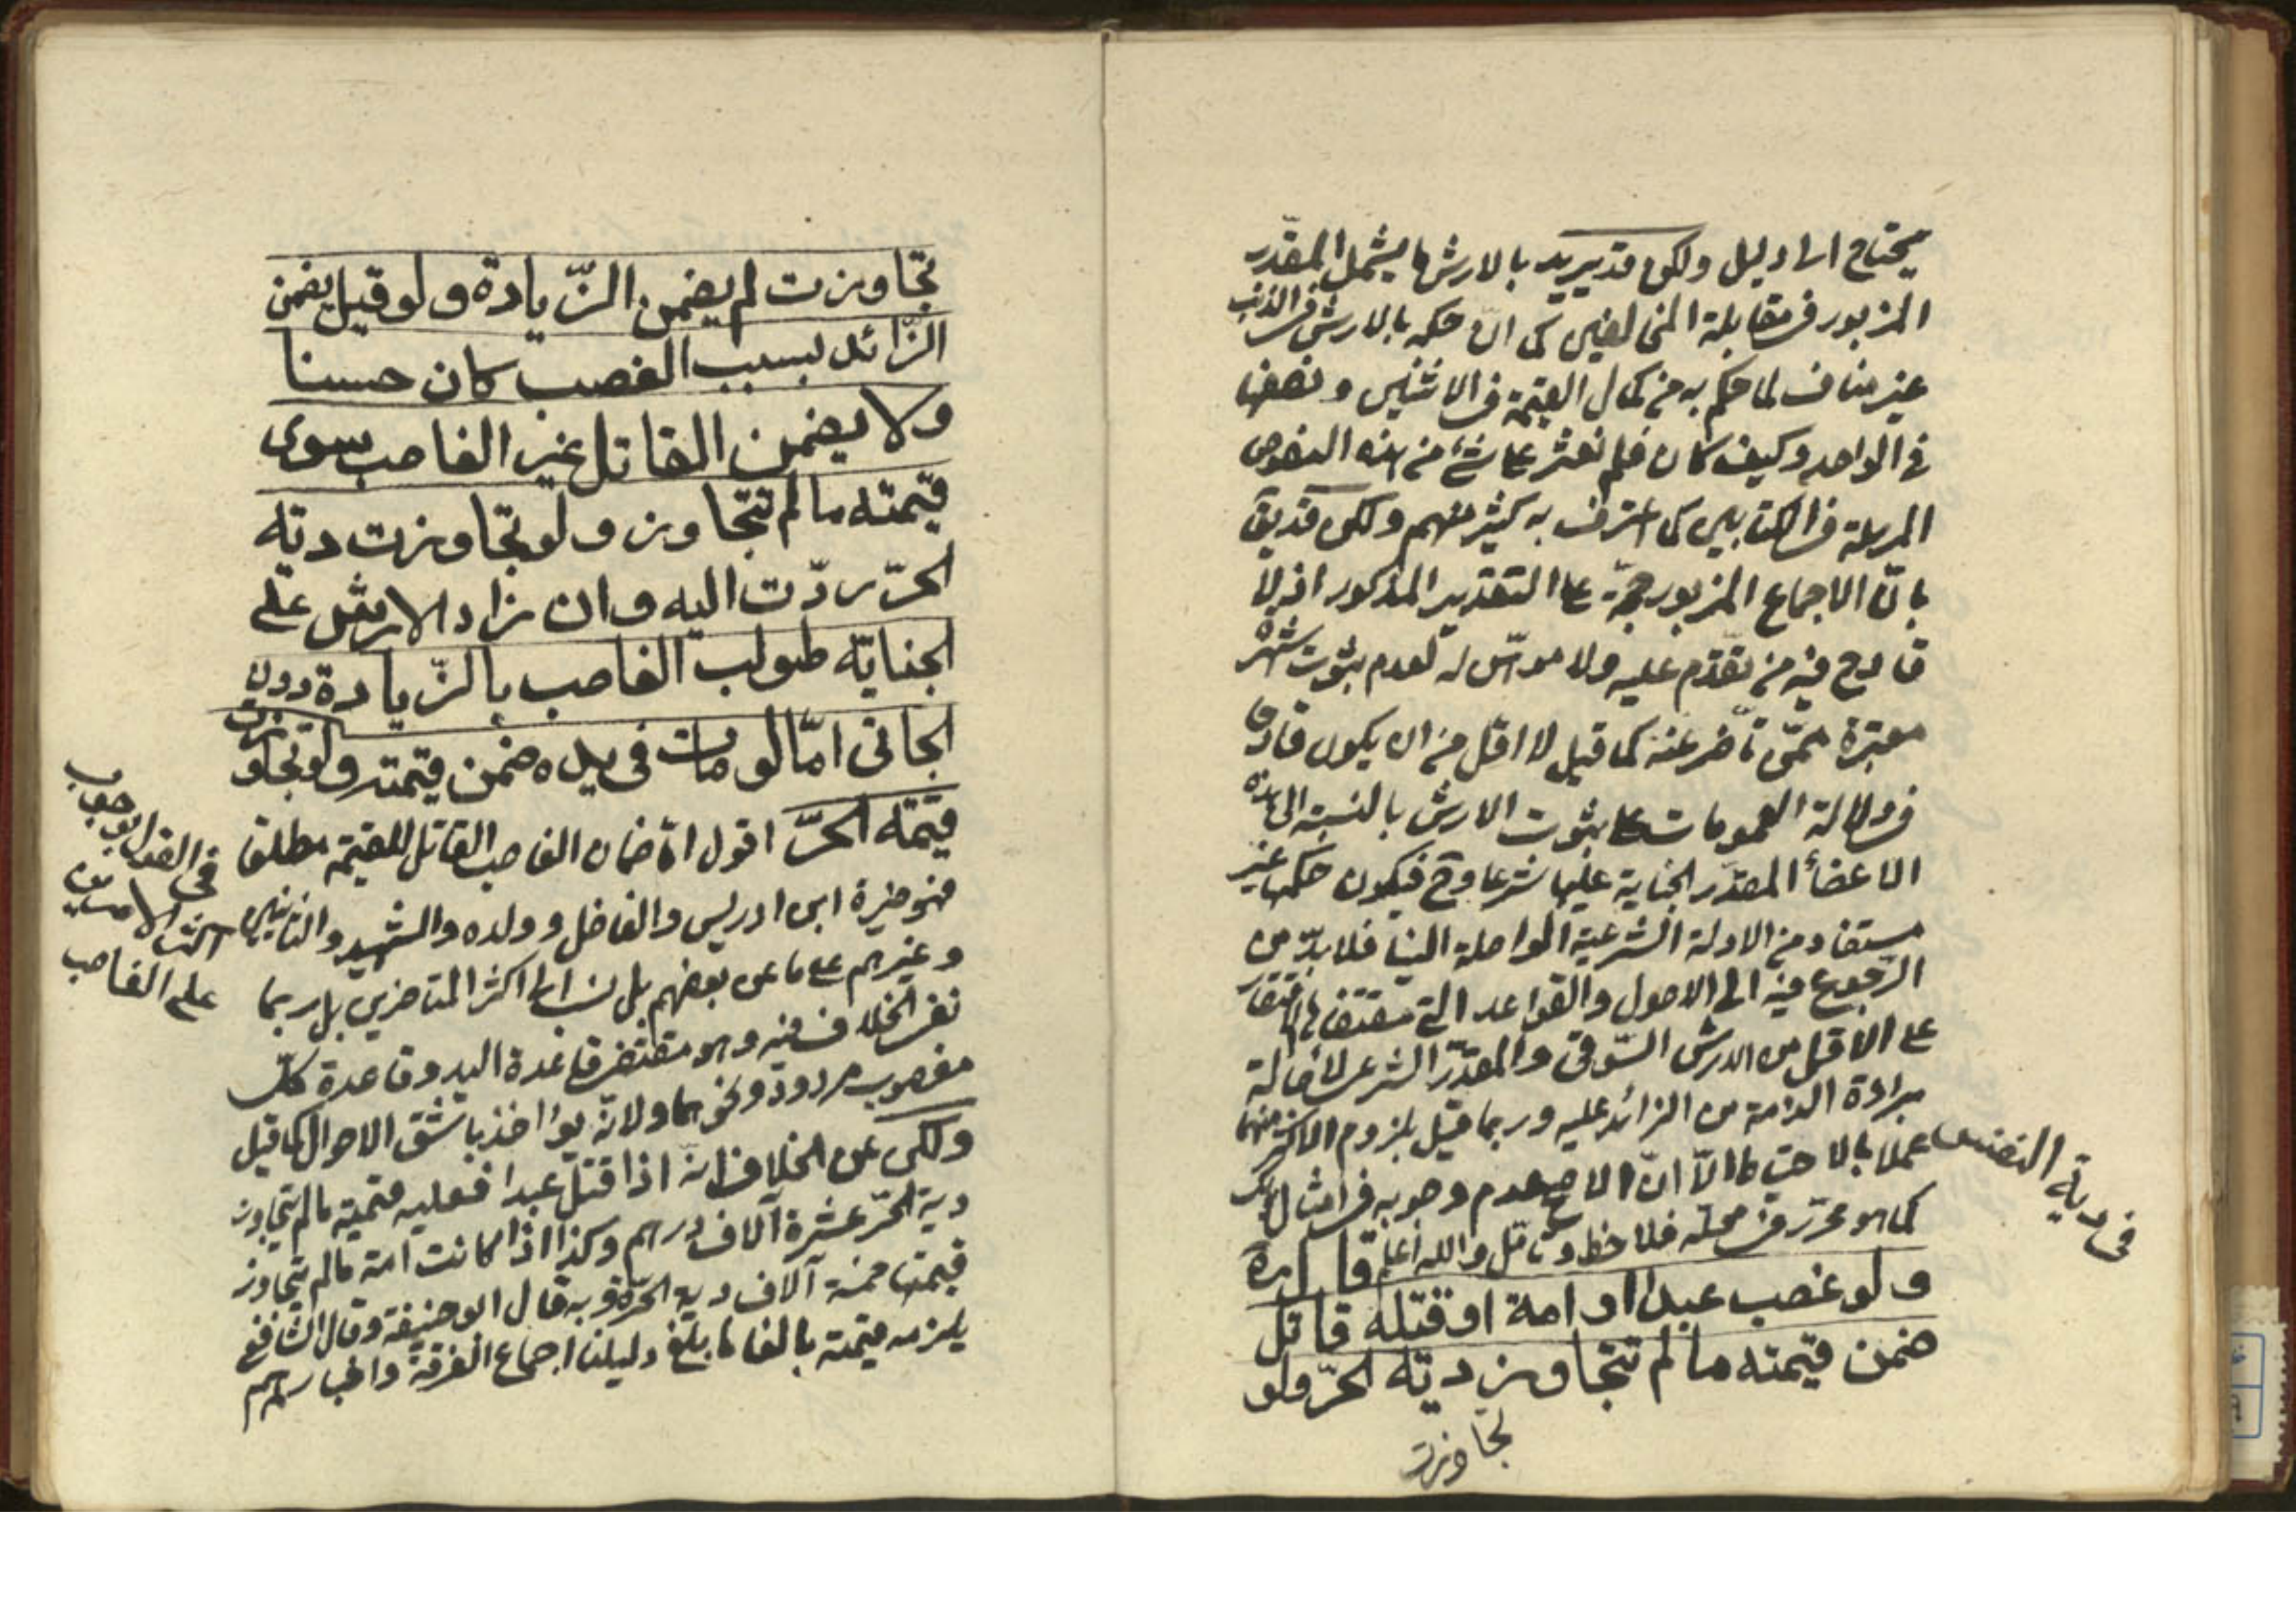 يحتاج الى دليل ولكن قد يريد بالارش ما يشمل المقدّر
المزبور في مقابلة المخالفين كى انّ حكمه بالارش في الذنب
غير مناف لما حكم به من كمال القيمة في الاثنين ونصفها
في الواحد وكيف كان فلم نعثر على شئ من هذه النصوص
المرسلة في الكتابين كى اعترف به كثير منهم ولكن قد يق
بانّ الاجماع المزبور حجّة على التقدير المذكور اذ لا
قادح فيه من تقدّم عليه ولا موهن له لعدم ثبوت شهرة
معتبرة ممّن تأخر عنه كما قيل لا اقل من ان يكون قادحا
في دلالة العمومات على ثبوت الارش بالنسبة الى هذه
الاعضأ المقدّر الجناية عليها شرعا وح فيكون حكمها غير
مستفاد من الادلة الشرعيّة الواصلة الينا فلا بدّ من
الرّجوع فيه الى الاصول والقواعد التي مقتضاها الاقتصار
على الاقل من الارش السّوقى والمقدّر الشرعى لاصالة
برائة الذمة من الزائد عليه وربما قيل بلزوم الاكثر منهما
عملا بالاحتياط الّا انّ الاصح عدم وجوبه في امثال ذلك
كما هو محرّر في محلّه فلاحظ وتأمّل والله اعلم قال ره
ولو غصب عبدا او امة او قتله قاتل
ضمن قيمته ما لم تتجاوز دية الحرّ ولو
تجاوزت
في دية النفس
تجاوزت لم يضمن الزّيادة ولو قيل يضمن
الزّائد بسبب الغصب كان حسنا
ولا يضمن القاتل غير الغاصب سوى
قيمته ما لم تتجاوز ولو تجاوزت دية
الحرّ ردّت اليه وان زاد الارش على
الجناية طولب الغاصب بالزّيادة دون
الجانى امّا لو مات في يده ضمن قيمته ولو تجاوزت
قيمة الحرّ اقول امّا ضمان الغاصب القاتل للقيمة مطلقا
فهو خيرة ابن ادريس والفاضل وولده والشهيد والثانيين
وغيرهم على ما عن بعضهم بل نسب الى اكثر المتأخرين بل ربما
نفى الخلاف فيه وهو مقتضى قاعدة اليد وقاعدة كلّ
مغصوب مردود ونحوهما ولانّه يؤاخذ باشقّ الاحوال كما قيل
ولكن عن الخلاف انّه اذا قتل عبدا فعليه قيمته ما لم يتجاوز
دية الحرّ عشرة آلاف درهم وكذا اذا كانت امة ما لم يتجاوز
قيمتها خمسة آلاف دية الحرّة وبه قال ابو حنيفة وقال الشافعي
يلزمه قيمته بالغا ما بلغ دليلنا اجماع الفرقة واخبارهم
في القول بوجوب
اكثر الامرين
على الغاصب